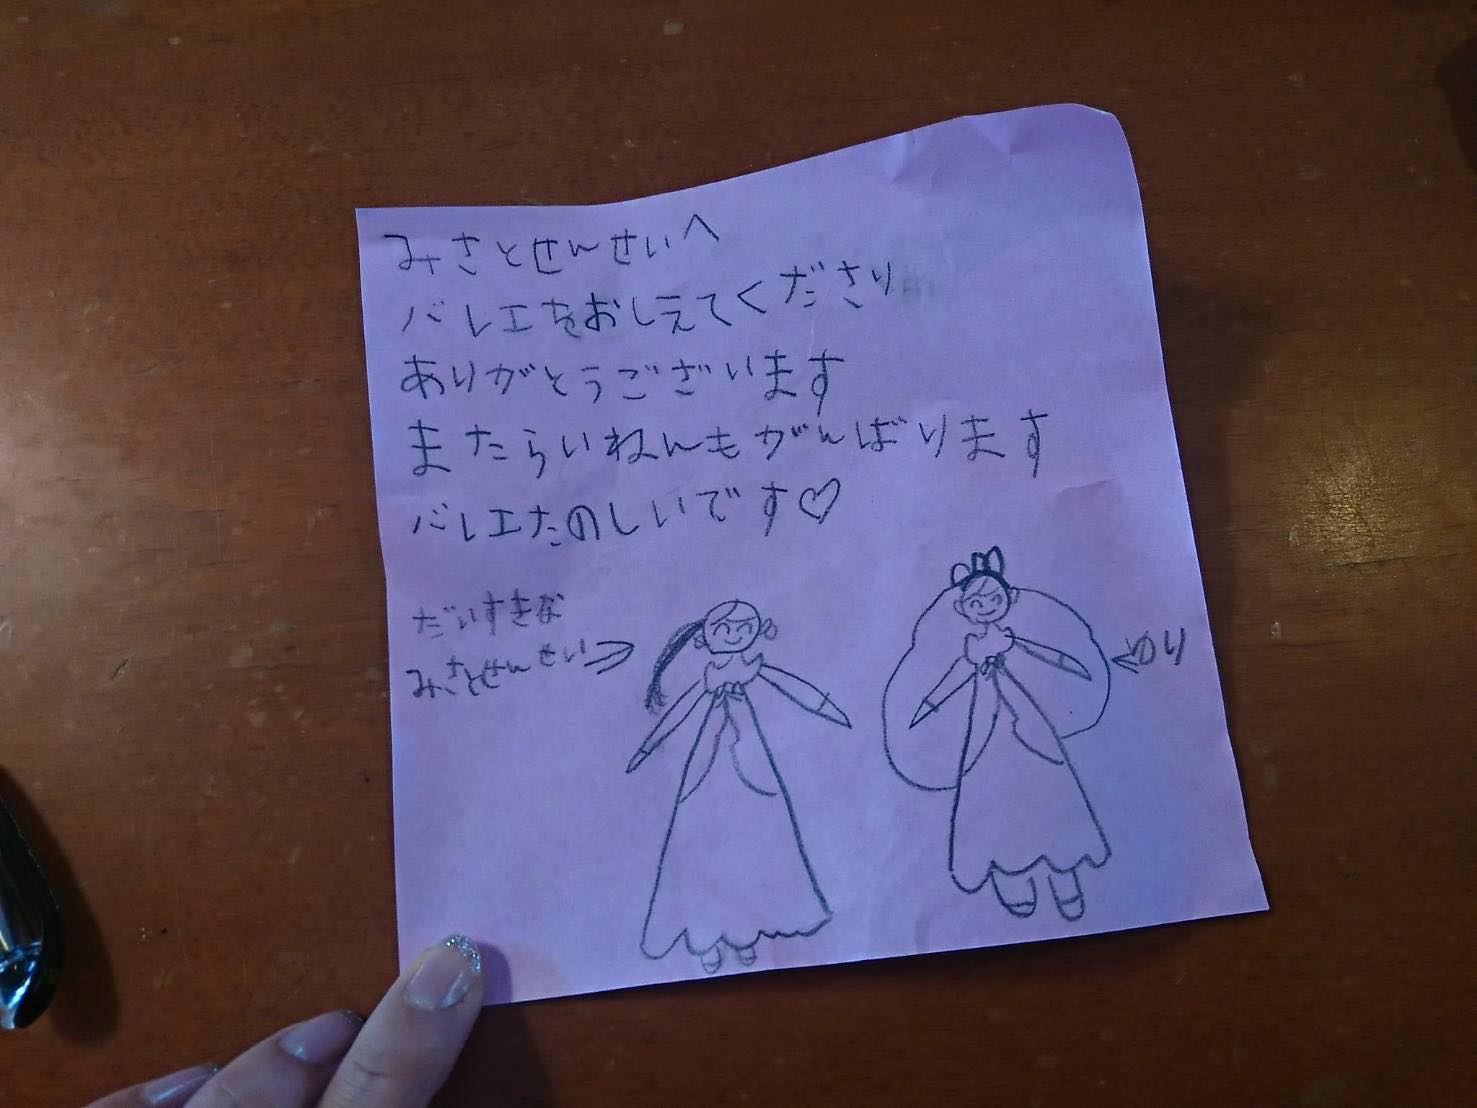 みさとせんせいへ
バレエをおしえてくださり
ありがとうございます
またらいねんもがんばります
バレエたのしいです♡
だいすきな
みさとせんせい→
←ゆり